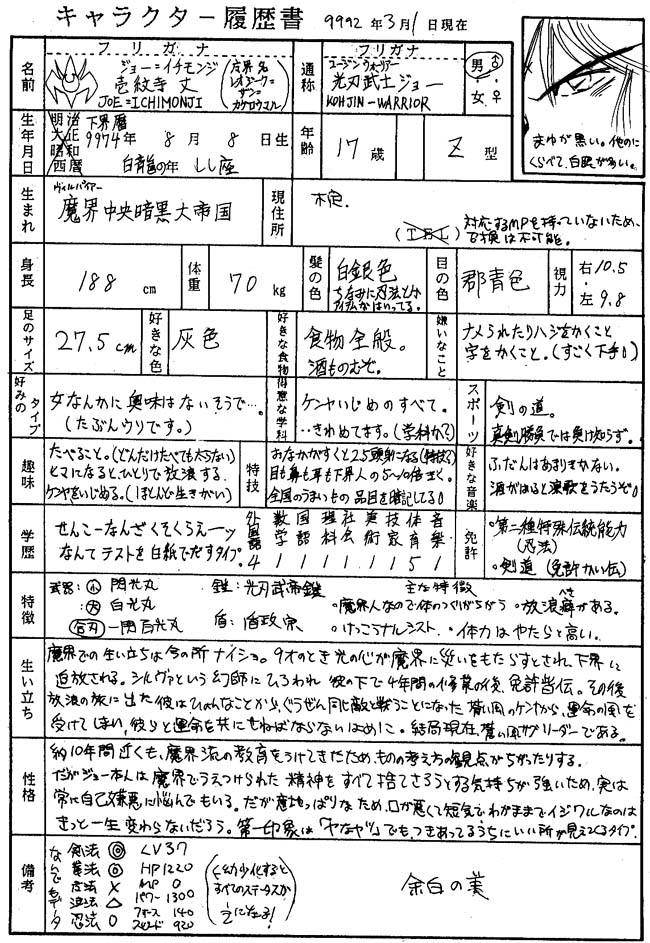 キャラクター履歴書 9992年3月1日現在
名前
フリガナ
ジョー=イチモンジ
壱紋寺 丈
JOE=ICHIMONJI
通称
フリガナ
コージンウォーリアー
光刃武士ジョー
KOHJIN-WARRIOR
男♂・女♀
まゆが黒い。他のに
くらべて、白眼が多い。
生年月日
明治 大正 昭和 西暦
下界暦
9974年 8月 8日生
白龍の年 しし座
年齢
17歳
Z型
生まれ
魔界中央暗黒大帝国
現住所
対応するMPを持っていないため、
召換は不可能。
(TEL)
身長
188cm
体重
70kg
髪の色
白銀色
ちなみに忍法とか
目の色
郡青色
視力
右10.5・左9.8
足のサイズ
27.5cm
好きな色
灰色
好きな食物
食物全般。
酒ものむぞ。
嫌いなこと
ナメられたりハジをかくこと
字をかくこと。(すごく下手!)
好みのタイプ
女なんかに興味はないそうで…。
(たぶんウリです。)
得意な学科
ケンヤいじめのすべて。
…きわめてます。(学科か?)
スポーツ
剣の道。
真剣勝負では負け知らず。
趣味
たべること。(どんだけたべても太らない)
ヒマになると、ひとりで放浪する。
ケンヤをいじめる。(ほとんど生きがい)
特技
おなかがすくと2.5頭身になる(特技?)
目も鼻も耳も下界人の5~10倍きく。
全国のうまいもの品目を暗記してる!
好きな音楽
ふだんはあまりきかない。
酒がはいると演歌をうたうぞ!
学歴
せんこーなんざくそくらえーッ
なんてテストを白紙でだすタイプ。
外国語 数学 国語 理科 社会 美術 技家 体育 音楽
4 1 1 1 1 1 1 5 1
免許
・第二種特殊伝統能力
(忍法)
・剣道(免許かい伝)
特徴
武器:小 閃光丸 鎧:光刃武帝鎧 主な特徴
大 白光丸 ・魔界人なので体のつくりがちがう ・放浪癖がある。
合刃 一閃百光丸 盾:盾政宗 ・けっこうナルシスト。 ・体力はやたらと高い。
生い立ち
魔界での生い立ちは今の所ナイショ。9才のとき光の心が魔界に災いをもたらすとされ、下界に
追放される。シルヴァという幻師にひろわれ彼の下で4年間の修業の後、免許皆伝。その後
放浪の旅に出た彼はひょんなことから、ぐうぜん同じ敵と戦うことになった蒼い風のケンから、運命の風を
受けてしまい、彼らと運命を共にせねばならないはめに。結局現在、蒼い風サブリーダーである。
性格
約10年間近くも、魔界流の教育をうけてきたため、ものの考え方の観点がちがったりする。
だがジョー本人は魔界でうえつけられた精神をすべて捨てさろうとする気持ちが強いため、実は
常に自己嫌悪に悩んでもいる。だが意地っぱりなため、口が悪くて短気でわがままでイジワルなのは
きっと一生変わらないだろう。第一印象は「ヤなヤツ」でも、つきあってるうちにいい所が見えてくるタイプ。
備考
なんでもデータ
剣法 ◎ LV37
拳法 ◎ HP1220
魔法 × MP 0
法 △ パワー 1300
忍法 ○ フォース 140
スピード 920
(幼少化すると
すべてのステータスが
1/2になる!)
余白の美